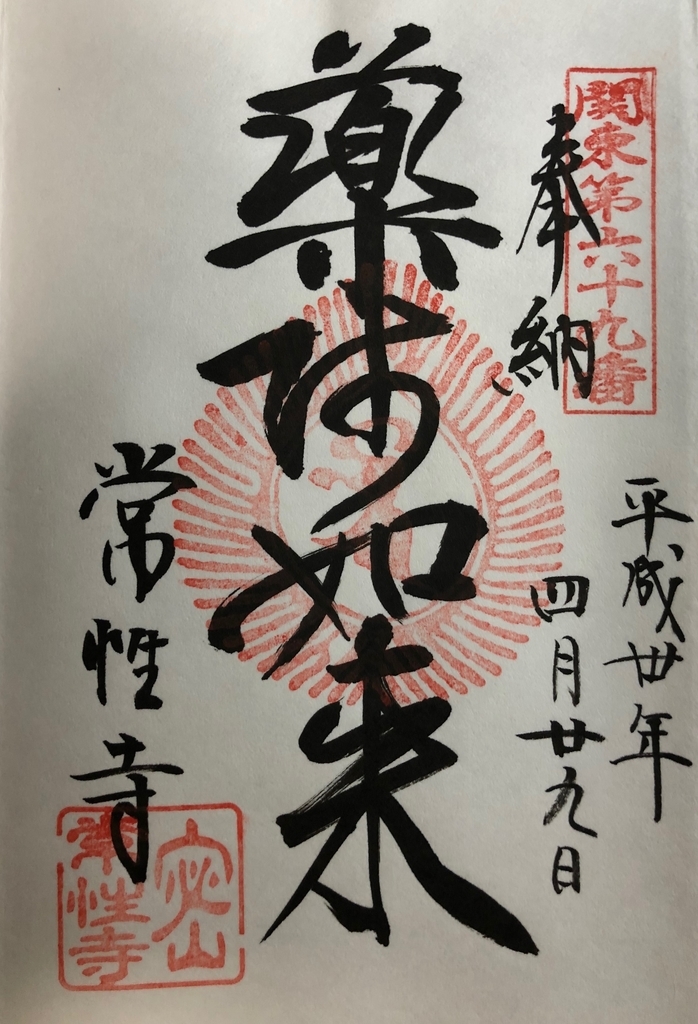 関東第六十九番
奉納
平成丗年
四月廿九日
薬师如来
常性寺
常性寺